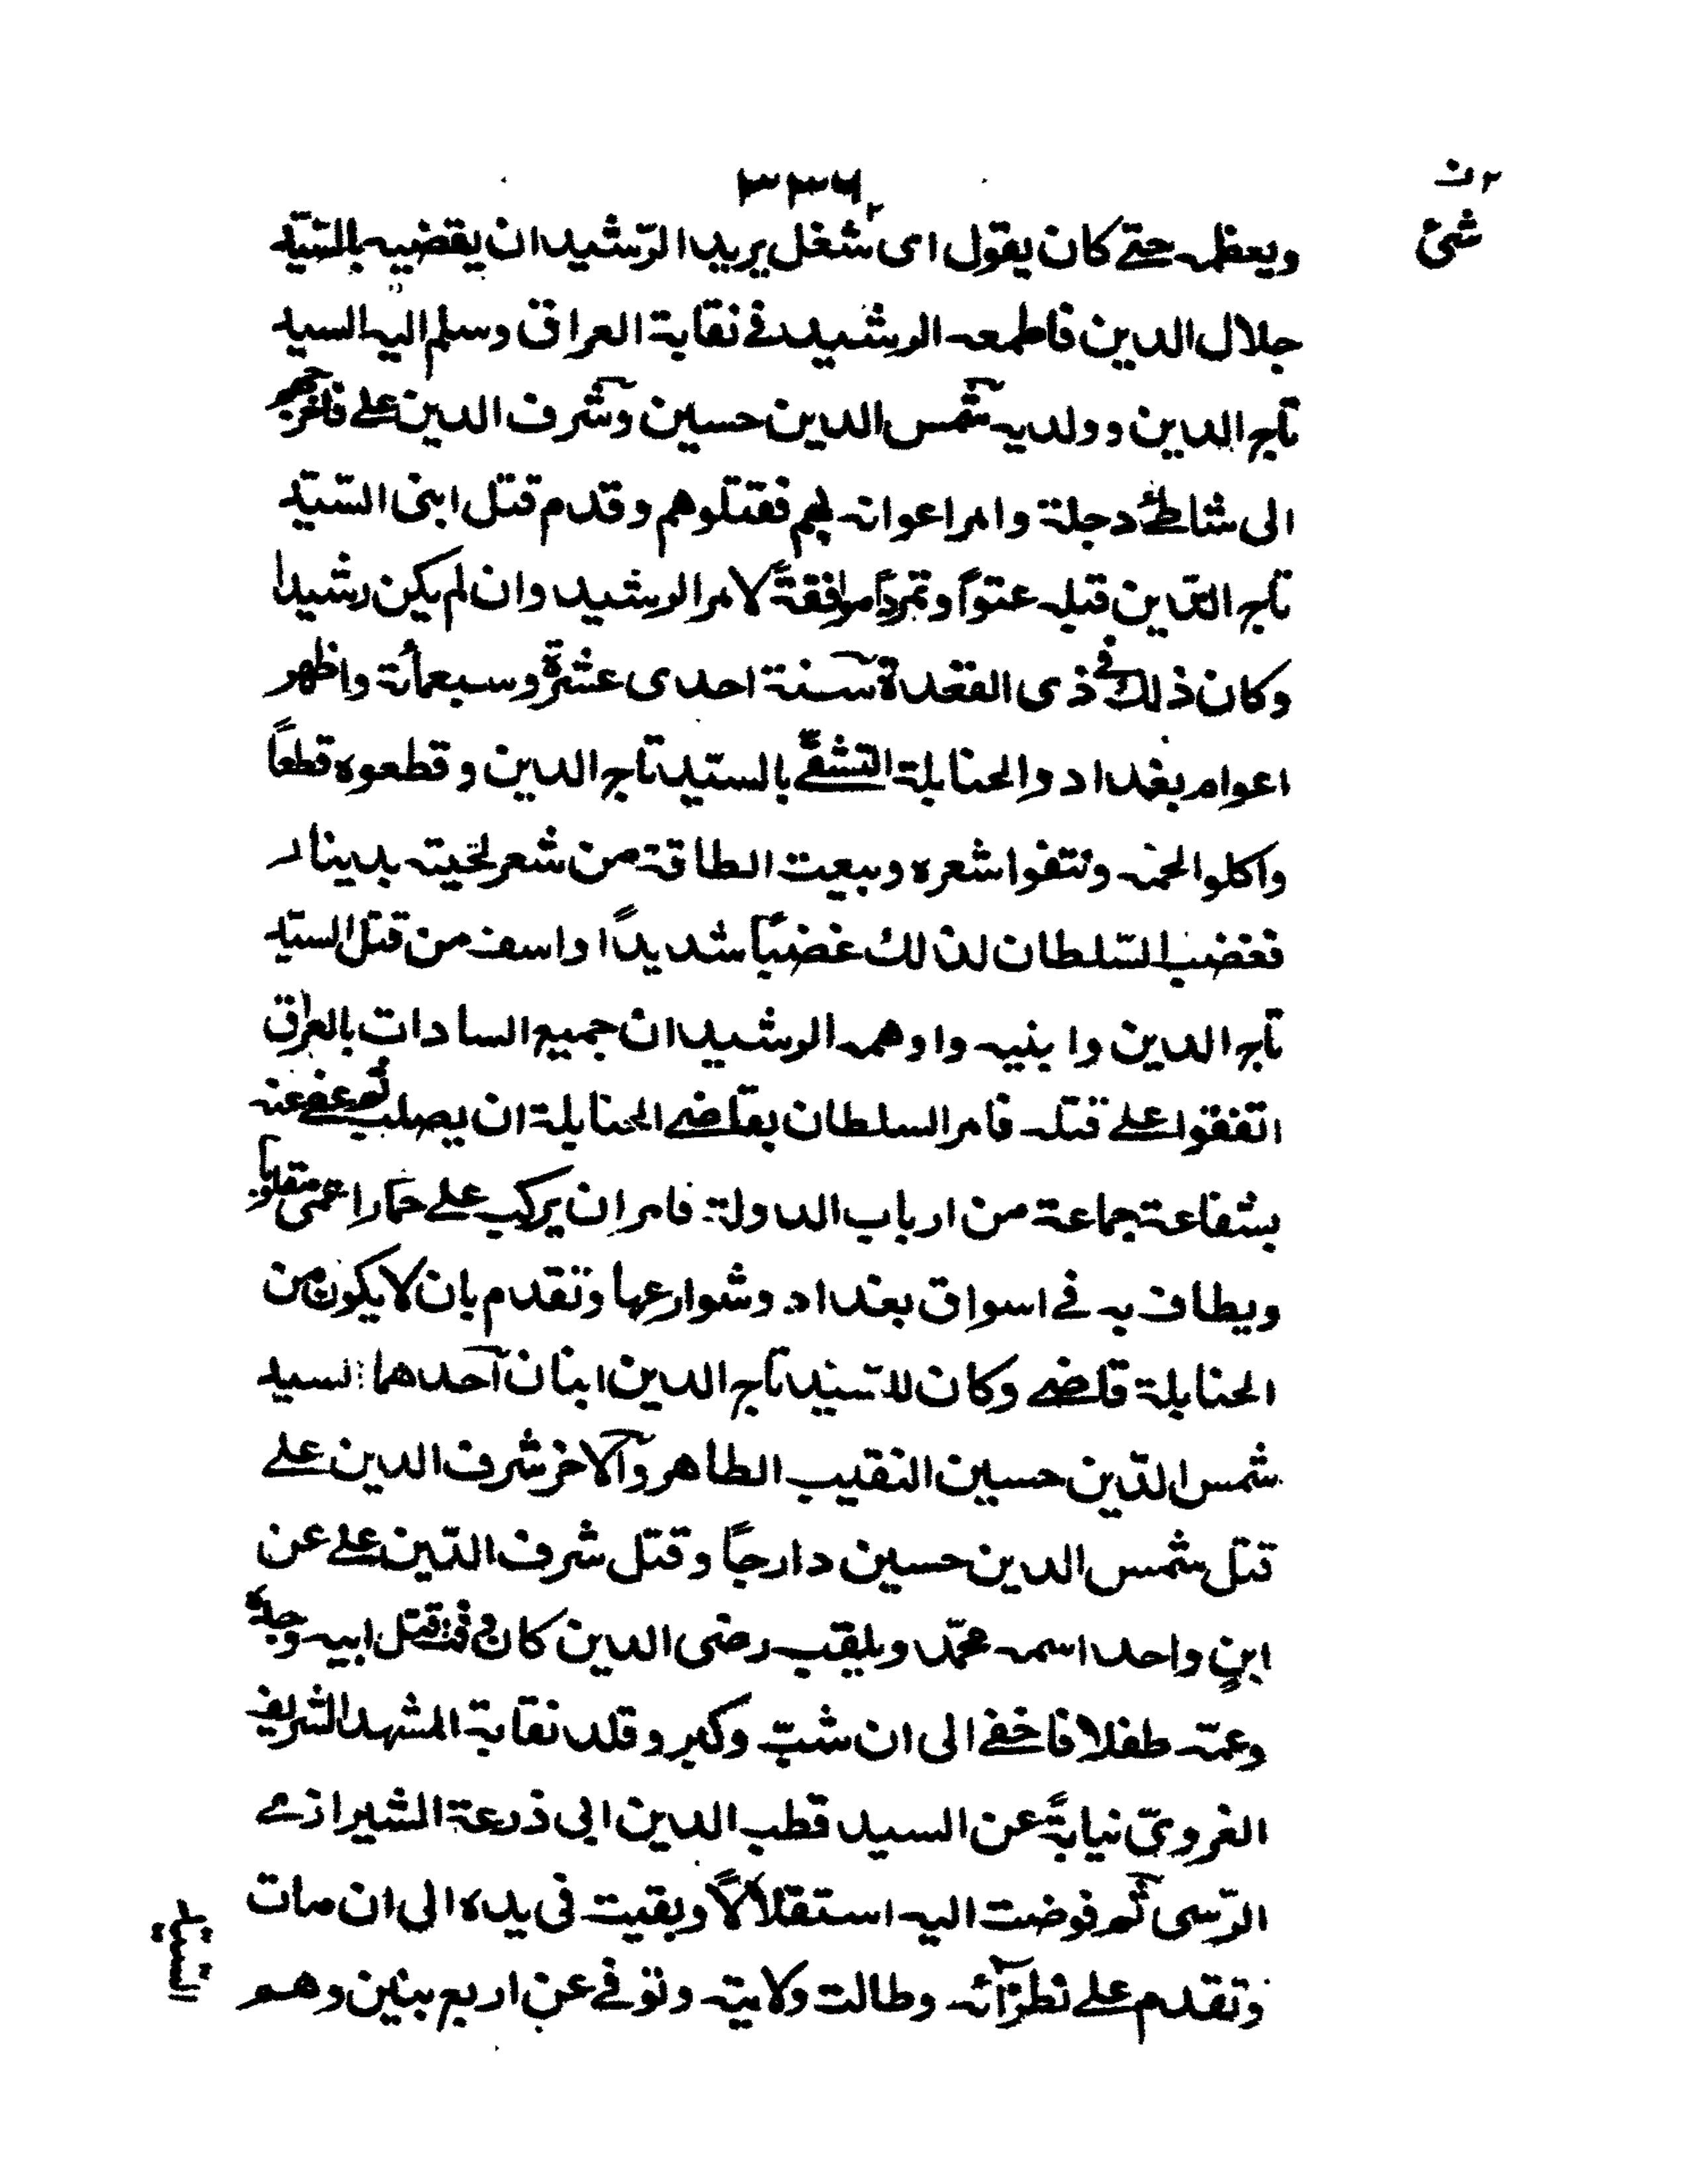 ٣٣٦
٢ ن
شئ
ويعظمه حتے كان يقول ای شغل يريد الرّشيد ان يقضيه بالسّيّد
جلال الدين فاطمعه الرشيد فے نقابة العراق وسلم اليه السيد
تاج الدين وولديه شمس الدين حسين وشرف الدين علے فاخرجهم
الى شاطئ دجلة وامر اعوانه بهم فقتلوهم وقدم قتل ابنى السّيّد
تاج الدّين قبله عتوّاً وتمرداً موافقةً لامر الرشيد وان لم يكن رشيدا
وكان ذلك فے ذى القعدة سنة احدى عشرة وسبعمأئة واظهر
اعوام بغداد والحنابلة التشفّے بالسيّد تاج الدين وقطعوه قطعاً
واكلوا لحمه ونتفوا شعره وبيعت الطاقة من شعر لحيته بدينار
فغضب السّلطان لذلك غضباً شديداً واسف من قتل السيّد
تاج الدين وابنيه واوهمه الرشيد ان جميع السادات بالعراق
اتفقوا علے قتله فامر السلطان بقاضے الحنابلة ان يصلب ثم عفے عنه
بشفاعة جماعة من ارباب الدولة فامر ان يركب علے حمار اعمى مقلوباً
ويطاف به فے اسواق بغداد وشوارعها وتقدم بان لا يكون من
الحنابلة قاضے وكان للسّيد تاج الدين ابنان احدهما السيد
شمس الدّين حسين النقيب الطاهر والآخر شرف الدين علے
قتل شمس الدين حسين دارجاً وقتل شرف الدّين علے عن
ابنٍ واحد اسمه محمّد ويلقب رضى الدين كان فے وقت قتل ابيه وجده
وعمّه طفلا فاخفے الى ان شبّ وكبر وقلد نقابة المشهد الشريف
الغرويّ نيابةً عن السيد قطب الدين ابى ذرعة الشيرازے
الرّسى ثم فوضت اليه استقلالاً وبقيت فى يده الى ان مات
وتقدم علے نظرائه وطالت ولايته وتوفے عن اربع بنين وهم